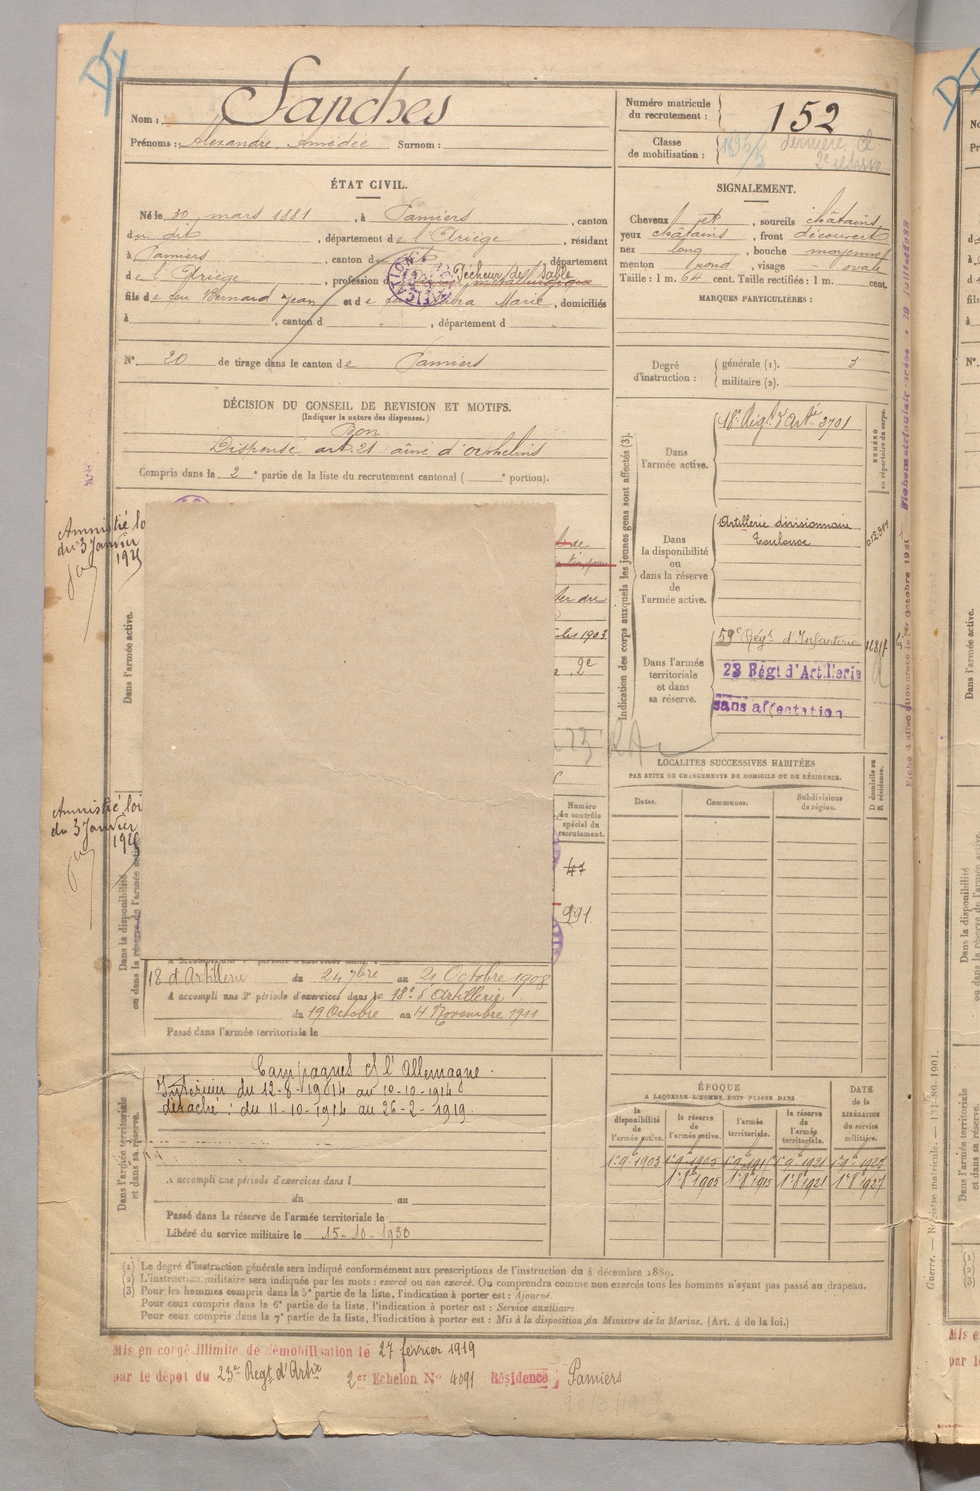 Nom : Sanches
Prénoms : Alexandre Amédée Surnom :
Numéro matricule du recrutement : 152
Classe de mobilisation :
ÉTAT CIVIL.
Né le 30 mars 1881, à Pamiers, canton
du dit, département de l'Ariège, résidant
à Pamiers, canton de, département
de l'Ariège, profession Pêcheur de Sable
fils de feu Bernard Jean et de Marie, domiciliés
à, canton d, département d
N° 20 de tirage dans le canton de Pamiers
SIGNALEMENT.
Cheveux et sourcils châtains
yeux châtains, front découvert
nez long, bouche moyenne
menton rond, visage ovale
Taille : 1 m. 64 cent. Taille rectifiée : 1 m. cent.
MARQUES PARTICULIÈRES :
Degré d'instruction : générale (1). 3
militaire (2).
DÉCISION DU CONSEIL DE REVISION ET MOTIFS.
(Indiquer la nature des dispenses.)
Bon
Dispensé art. 21 aîné d'orphelins
Compris dans la 2e partie de la liste du recrutement cantonal (e portion).
Indication des corps auxquels les jeunes gens sont affectés (3).
Dans l'armée active.
18e Régt d'Artie 3701
Dans la disponibilité ou dans la réserve de l'armée active.
Artillerie divisionnaire
Toulouse
Dans l'armée territoriale et dans sa réserve.
59e Régt d'Infanterie
23 Régt d'Artillerie
sans affectation
NUMÉRO au répertoire du corps.
Amnistié loi
du 3 Janvier
1925
Dans l'armée active.
Amnistié loi
du 3 Janvier
1925
Dans la disponibilité ou dans la réserve de l'armée active.
1903
2e
Numéro du contrôle spécial du recrutement.
47
991
LOCALITÉS SUCCESSIVES HABITÉES
PAR SUITE DE CHANGEMENTS DE DOMICILE OU DE RÉSIDENCE.
Dates. Communes. Subdivisions de région. D domicile ou R résidence.
18 d'Artillerie du 24 7bre au 21 Octobre 1908
A accompli une 2e période d'exercices dans le 18e d'Artillerie
du 19 Octobre au 4 Novembre 1911
Passé dans l'armée territoriale le
Dans l'armée territoriale et dans sa réserve.
Campagnes ct l'Allemagne.
Intérieur du 12-8-1914 au 10-10-1914
détaché : du 11-10-1914 au 26-2-1919
A accompli une période d'exercices dans l
du au
Passé dans la réserve de l'armée territoriale le
Libéré du service militaire le 15-10-1930
ÉPOQUE
A LAQUELLE L'HOMME DOIT PASSER DANS
la disponibilité de l'armée active. la réserve de l'armée active. l'armée territoriale. la réserve de l'armée territoriale. DATE de la LIBÉRATION du service militaire.
1er 9 1903 1er 9 1905 1er 9 1915 1er 9 1921 1er 9 1927
1er 8 1905 1er 8 1915 1er 8 1921 1er 8 1927
(1) Le degré d'instruction générale sera indiqué conformément aux prescriptions de l'instruction du 4 décembre 1889.
(2) L'instruction militaire sera indiquée par les mots : exercé ou non exercé. On comprendra comme non exercés tous les hommes n'ayant pas passé au drapeau.
(3) Pour les hommes compris dans la 5e partie de la liste, l'indication à porter est : Ajourné.
Pour ceux compris dans la 6e partie de la liste, l'indication à porter est : Service auxiliaire
Pour ceux compris dans la 7e partie de la liste, l'indication à porter est : Mis à la disposition du Ministre de la Marine. (Art. 4 de la loi.)
Mis en congé illimité de démobilisation le 27 février 1919
par le dépôt du 23e Regt d'Artie 2er Echelon N° 4091 Résidence : Pamiers